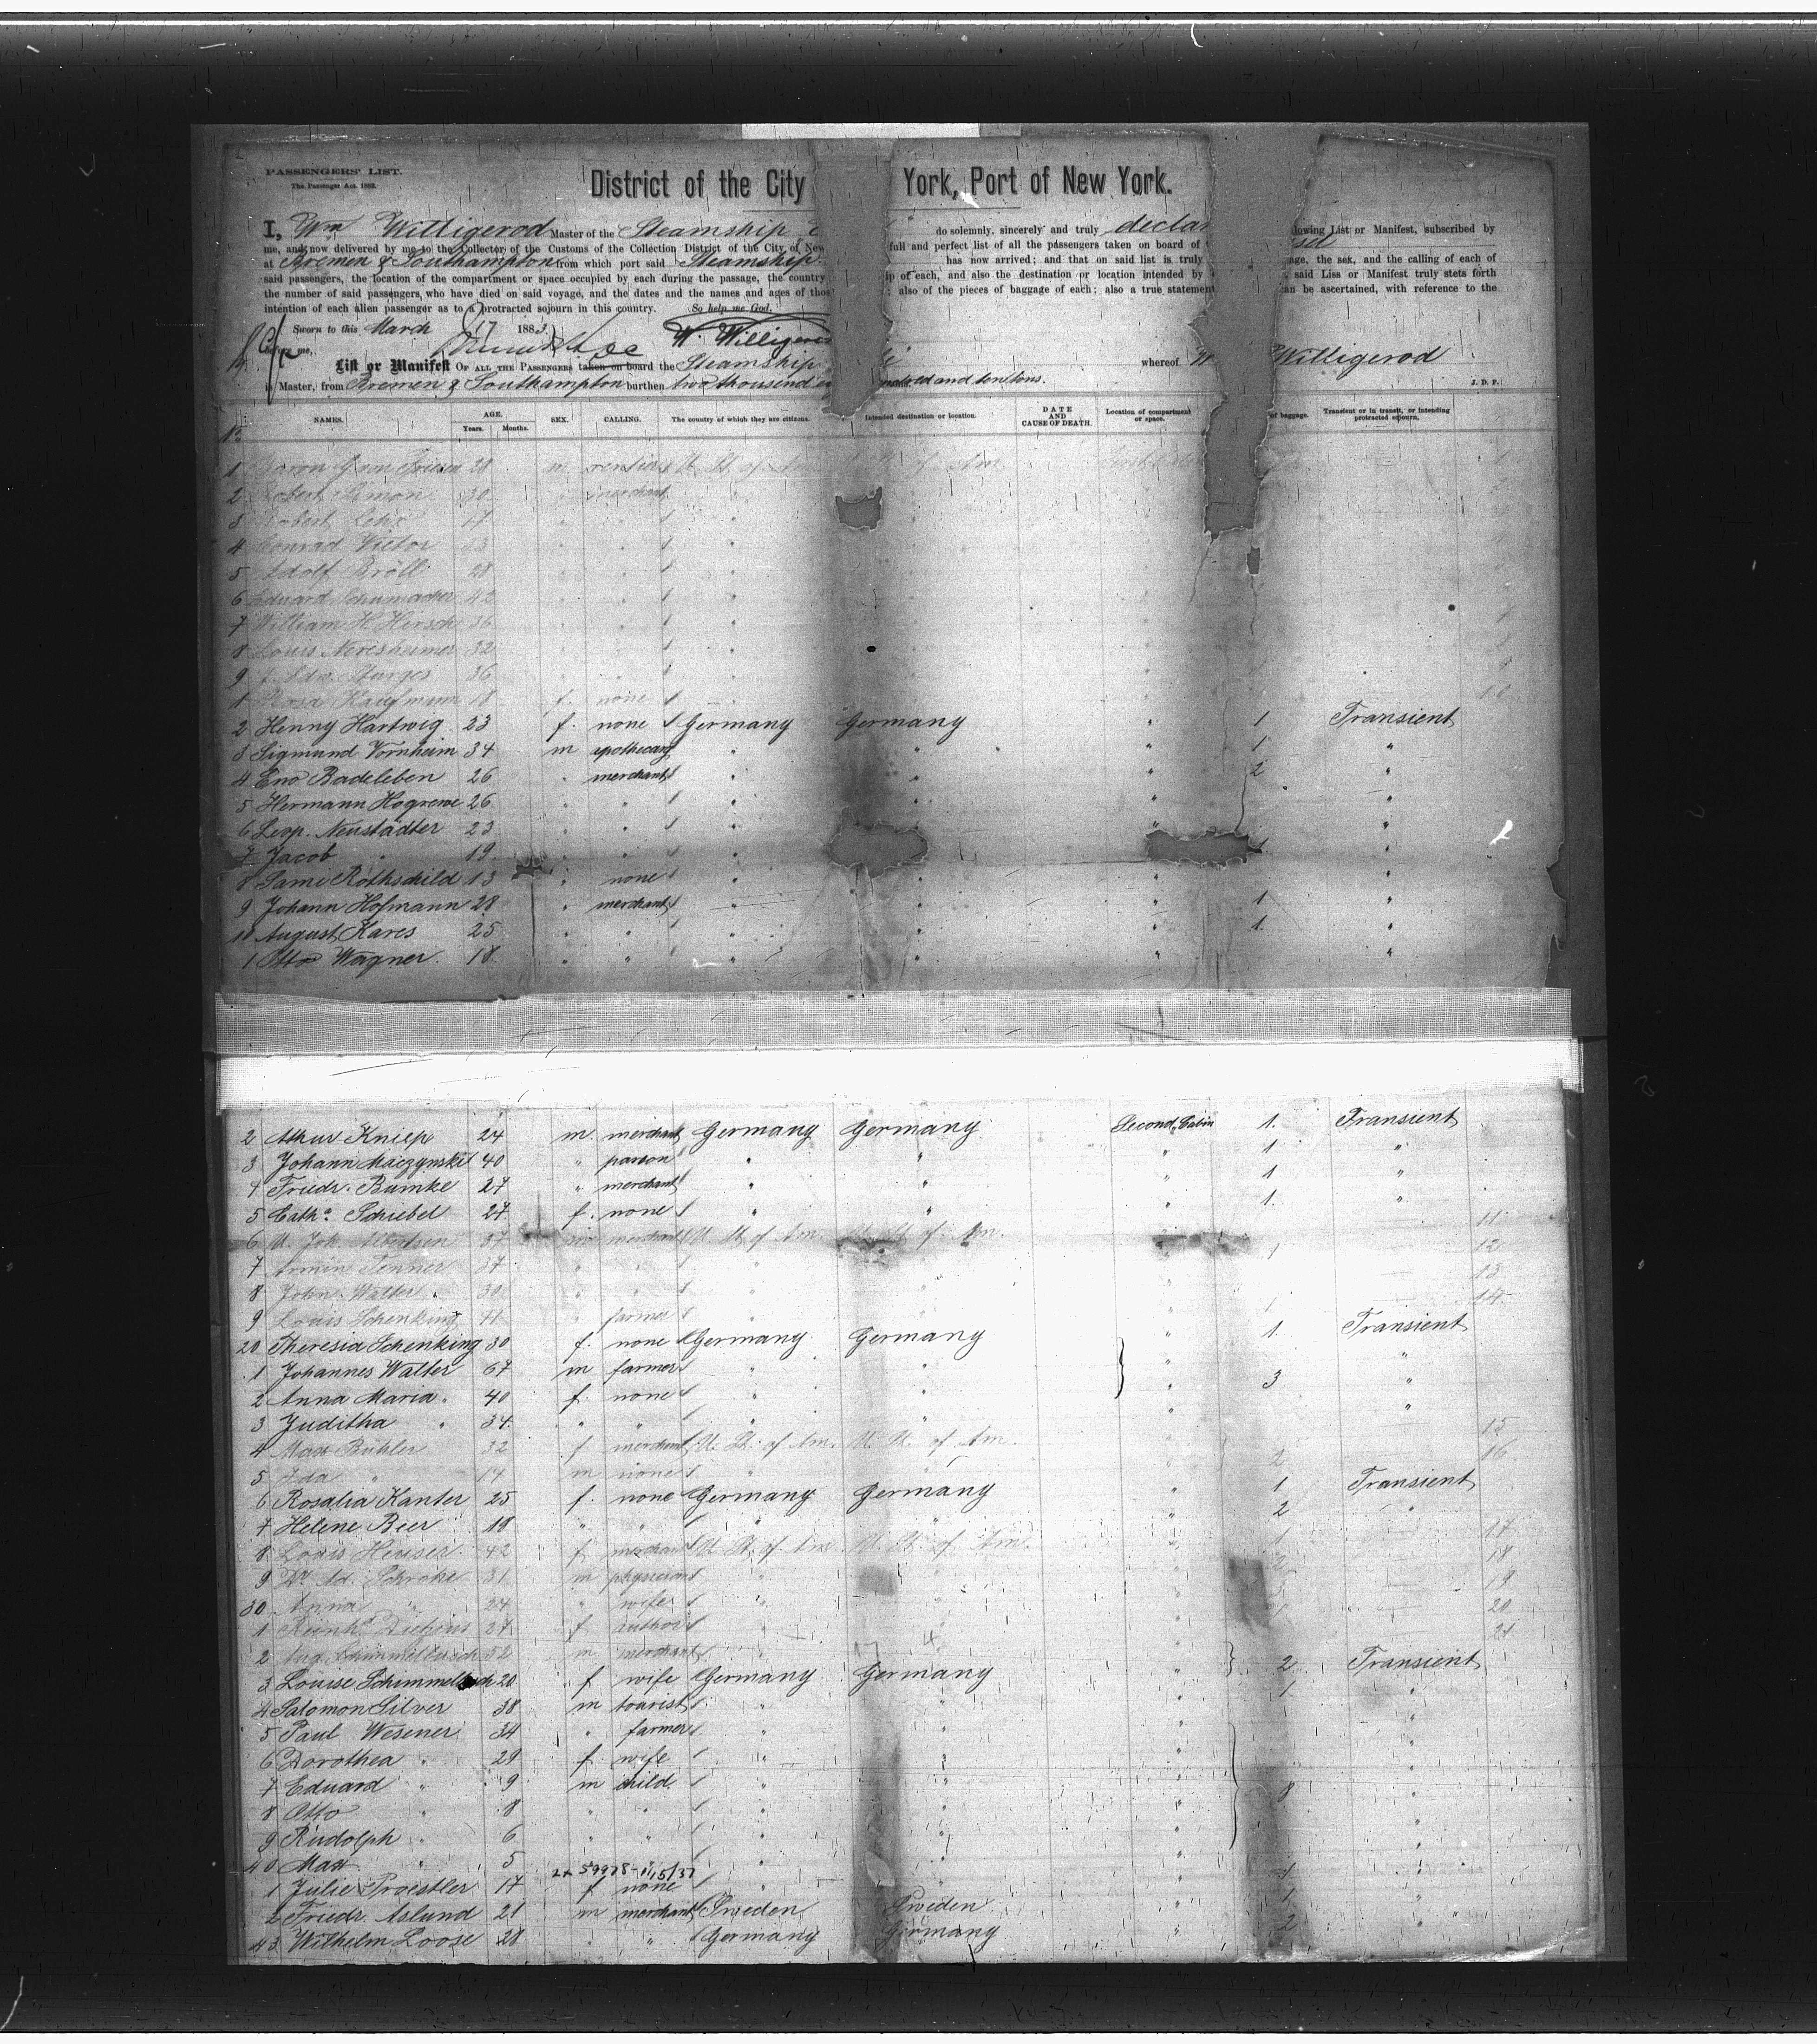 PASSENGERS' LIST.
The Passenger Act, 1882.
District of the City York, Port of New York.
I, Wm Willigerod Master of the Steamship do solemnly, sincerely and truly declar lowing List or Manifest, subscribed by
me, and now delivered by me to the Collector of the Customs of the Collection District of the City of New full and perfect list of all the passengers taken on board of
at Bremen & Southampton from which port said Steamship has now arrived; and that on said list is truly age, the sex, and the calling of each of
said passengers, the location of the compartment or space occupied by each during the passage, the country ip of each, and also the destination or location intended by said Liss or Manifest truly stets forth
the number of said passengers, who have died on said voyage, and the dates and the names and ages of thos ; also of the pieces of baggage of each; also a true statement can be ascertained, with reference to the
intention of each alien passenger as to a protracted sojourn in this country. So help me God.
Sworn to this March 17 1883 W. Willigerod
before me,
List or Manifest OF ALL THE PASSENGERS taken on board the Steamship whereof W Willigerod
is Master, from Bremen & Southampton burthen two thousend and ten tons. J. D. F.
NAMES. AGE. Years. Months. SEX. CALLING. The country of which they are citizens. Intended destination or location. DATE AND CAUSE OF DEATH. Location of compartment or space. of baggage. Transient or in transit, or intending protracted sojourn.
1 Baron G von Friesen 28 m rentier U. St. of Am. of Am 1
2 Robert Simon 30 " merchant "
3 Robert 17 " " "
4 Conrad Victor 23 " " "
5 Adolf Bröll 28 " " "
6 Eduard Schumacher 42 " " "
7 William H. Hirsch 36 " " "
8 Louis Neresheimer 32 " " "
9 Sturges 36 " " " 9
1 Rosa Kaufmann 18 f. none " 10
2 Henny Hartwig 23 f. none Germany Germany " 1 Transient
3 Sigmund Vornheim 34 m apothecary " " " 1 "
4 Eno Badeleben 26 " merchant " " " 2 "
5 Hermann Hogrewe 26 " " " " "
6 Leop. Neustädter 23 " " " " "
7 Jacob " 19 " " " 1 "
8 Sami Rothschild 13 " none " " " "
9 Johann Hofmann 28 " merchant " " " 1 "
10 August Kares 25 " " " " " 1 "
1 Otto Wagner 18 " " " " " "
2 Athur Kniep 24 m. merchant Germany Germany Second Cabin 1. Transient
3 Johann Maczynski 40 " parson " " " 1 "
4 Friedr. Bumke 27 " merchant " " " 1 "
5 Catha. Schiebel 27 f. none " " " 1. "
6 Joh. Albertsen 37 m merchant U. St. of Am. U. St. of Am. 11
7 Armin Tenner 37 " " " " 1 12
8 John Walter 30 " " " " 13
9 Louis Schenking 41 " farmer " " " 1 14
20 Theresia Schenking 30 f. none Germany Germany " 1. Transient
1 Johannes Walter 67 m farmer " " " "
2 Anna Maria " 40 f. none " " " 3 "
3 Juditha " 34 " " " " " "
4 Max Bühler 32 f merchant U. St. of Am. U. St. of Am. " 15
5 Ida " 14 m none " " 2 16
6 Rosalia Kanter 25 f. none Germany Germany " 1 Transient
7 Helene Beer 19 " " " " " 2 "
8 Louis Heuser 42 f merchant U. St. of Am. U. St. of Am. " 1 17
9 Dr. Ad. Schröke 31 m physician " " " 2 18
30 Anna " 24 " wife " " " 19
1 Reinhd. 27 f author " " 20
2 Aug. Schimmelbusch 52 m merchant " 21
3 Louise Schimmelbsch 20 f wife Germany Germany " 2 Transient
4 Salomon Silver 38 m tourist " " " 1 "
5 Paul Wesener 34 " farmer " " " "
6 Dorothea " 29 f. wife " " " "
7 Eduard " 9 m child. " " " "
8 Otto " 8 " " " " " 8 "
9 Rudolph " 6 " " " " " "
40 Max " 5 " " " " "
2x 59978-11/15/37
1 Julie Proestler 17 f none " " " 1 "
2 Friedr. Aslund 21 m merchant Sweden Sweden " 1 "
43 Wilhelm Loose 28 " " Germany Germany " 2 "